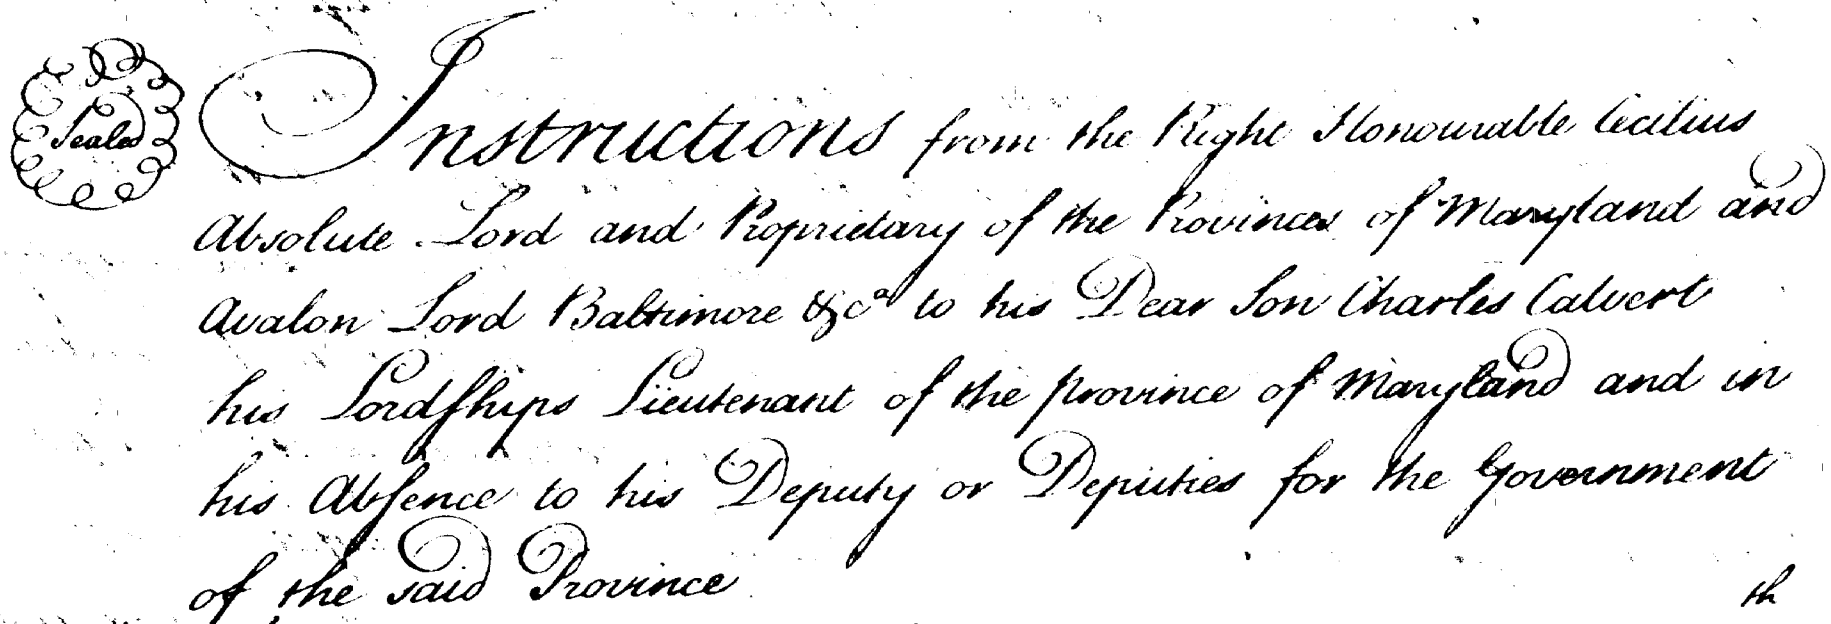 Sealed
Instructions from the Right Honourable Cecilius
Absolute Lord and Proprietary of the Provinces of Maryland and
Avalon Lord Baltimore &cª to his Dear Son Charles Calvert
his Lordships Lieutenant of the province of Maryland and in
his Absence to his Deputy or Deputies for the Government
of the said Province
th